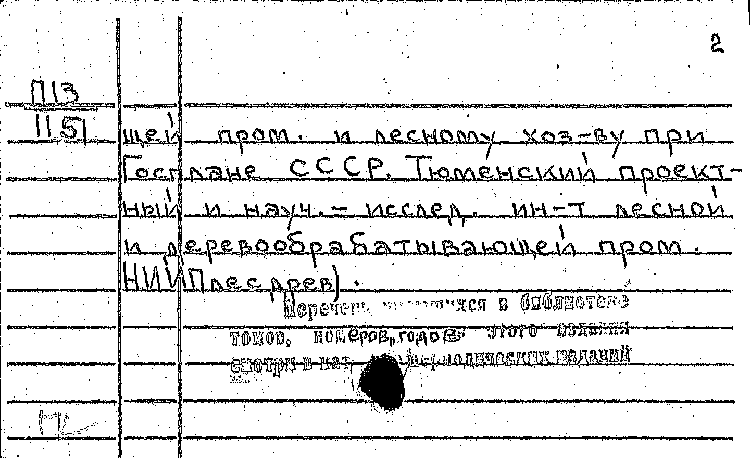 2
П13
115
щей пром. и лесному хоз-ву при
Госплане СССР. Тюменский проект-
ный и науч.-исслед. ин-т лесной
и деревообрабатывающей пром.
НИИПлесдрев).
Перечень имеющихся в библиотеке
томов, номеров, годов этого издания
смотри в периодических изданий